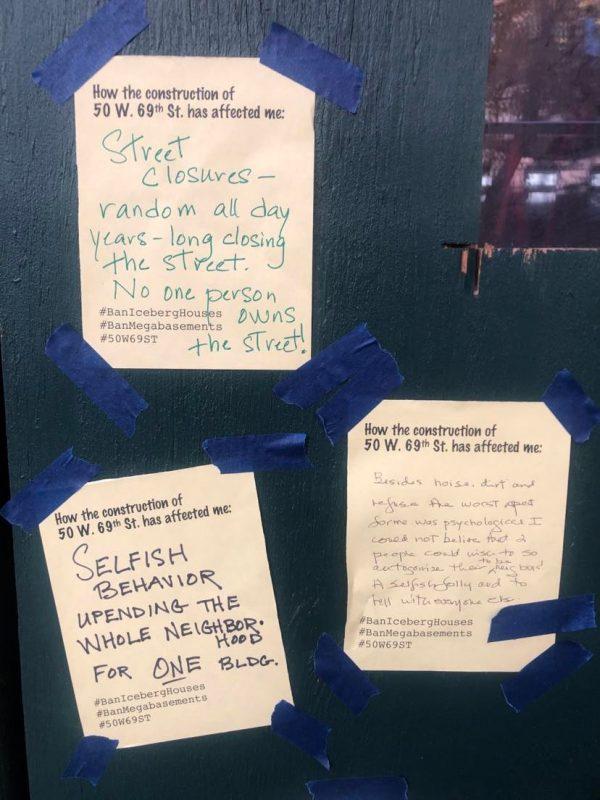 How the construction of
50 W. 69th St. has affected me:
Street
closures –
random all day
years-long closing
the street.
No one person
owns
the street!
#BanIcebergHouses
#BanMegabasements
#50W69ST
How the construction of
50 W. 69th St. has affected me:
SELFISH
BEHAVIOR
UPENDING THE
WHOLE NEIGHBOR-
HOOD
FOR ONE BLDG.
#BanIcebergHouses
#BanMegabasements
#50W69ST
How the construction of
50 W. 69th St. has affected me:
Besides noise, dirt and
refuse the worst
for me was psychological I
could not belive that 2
people could wish to so
antagonise their to be neighbors!
A selfish folly and to
hell with everyone else
#BanIcebergHouses
#BanMegabasements
#50W69ST